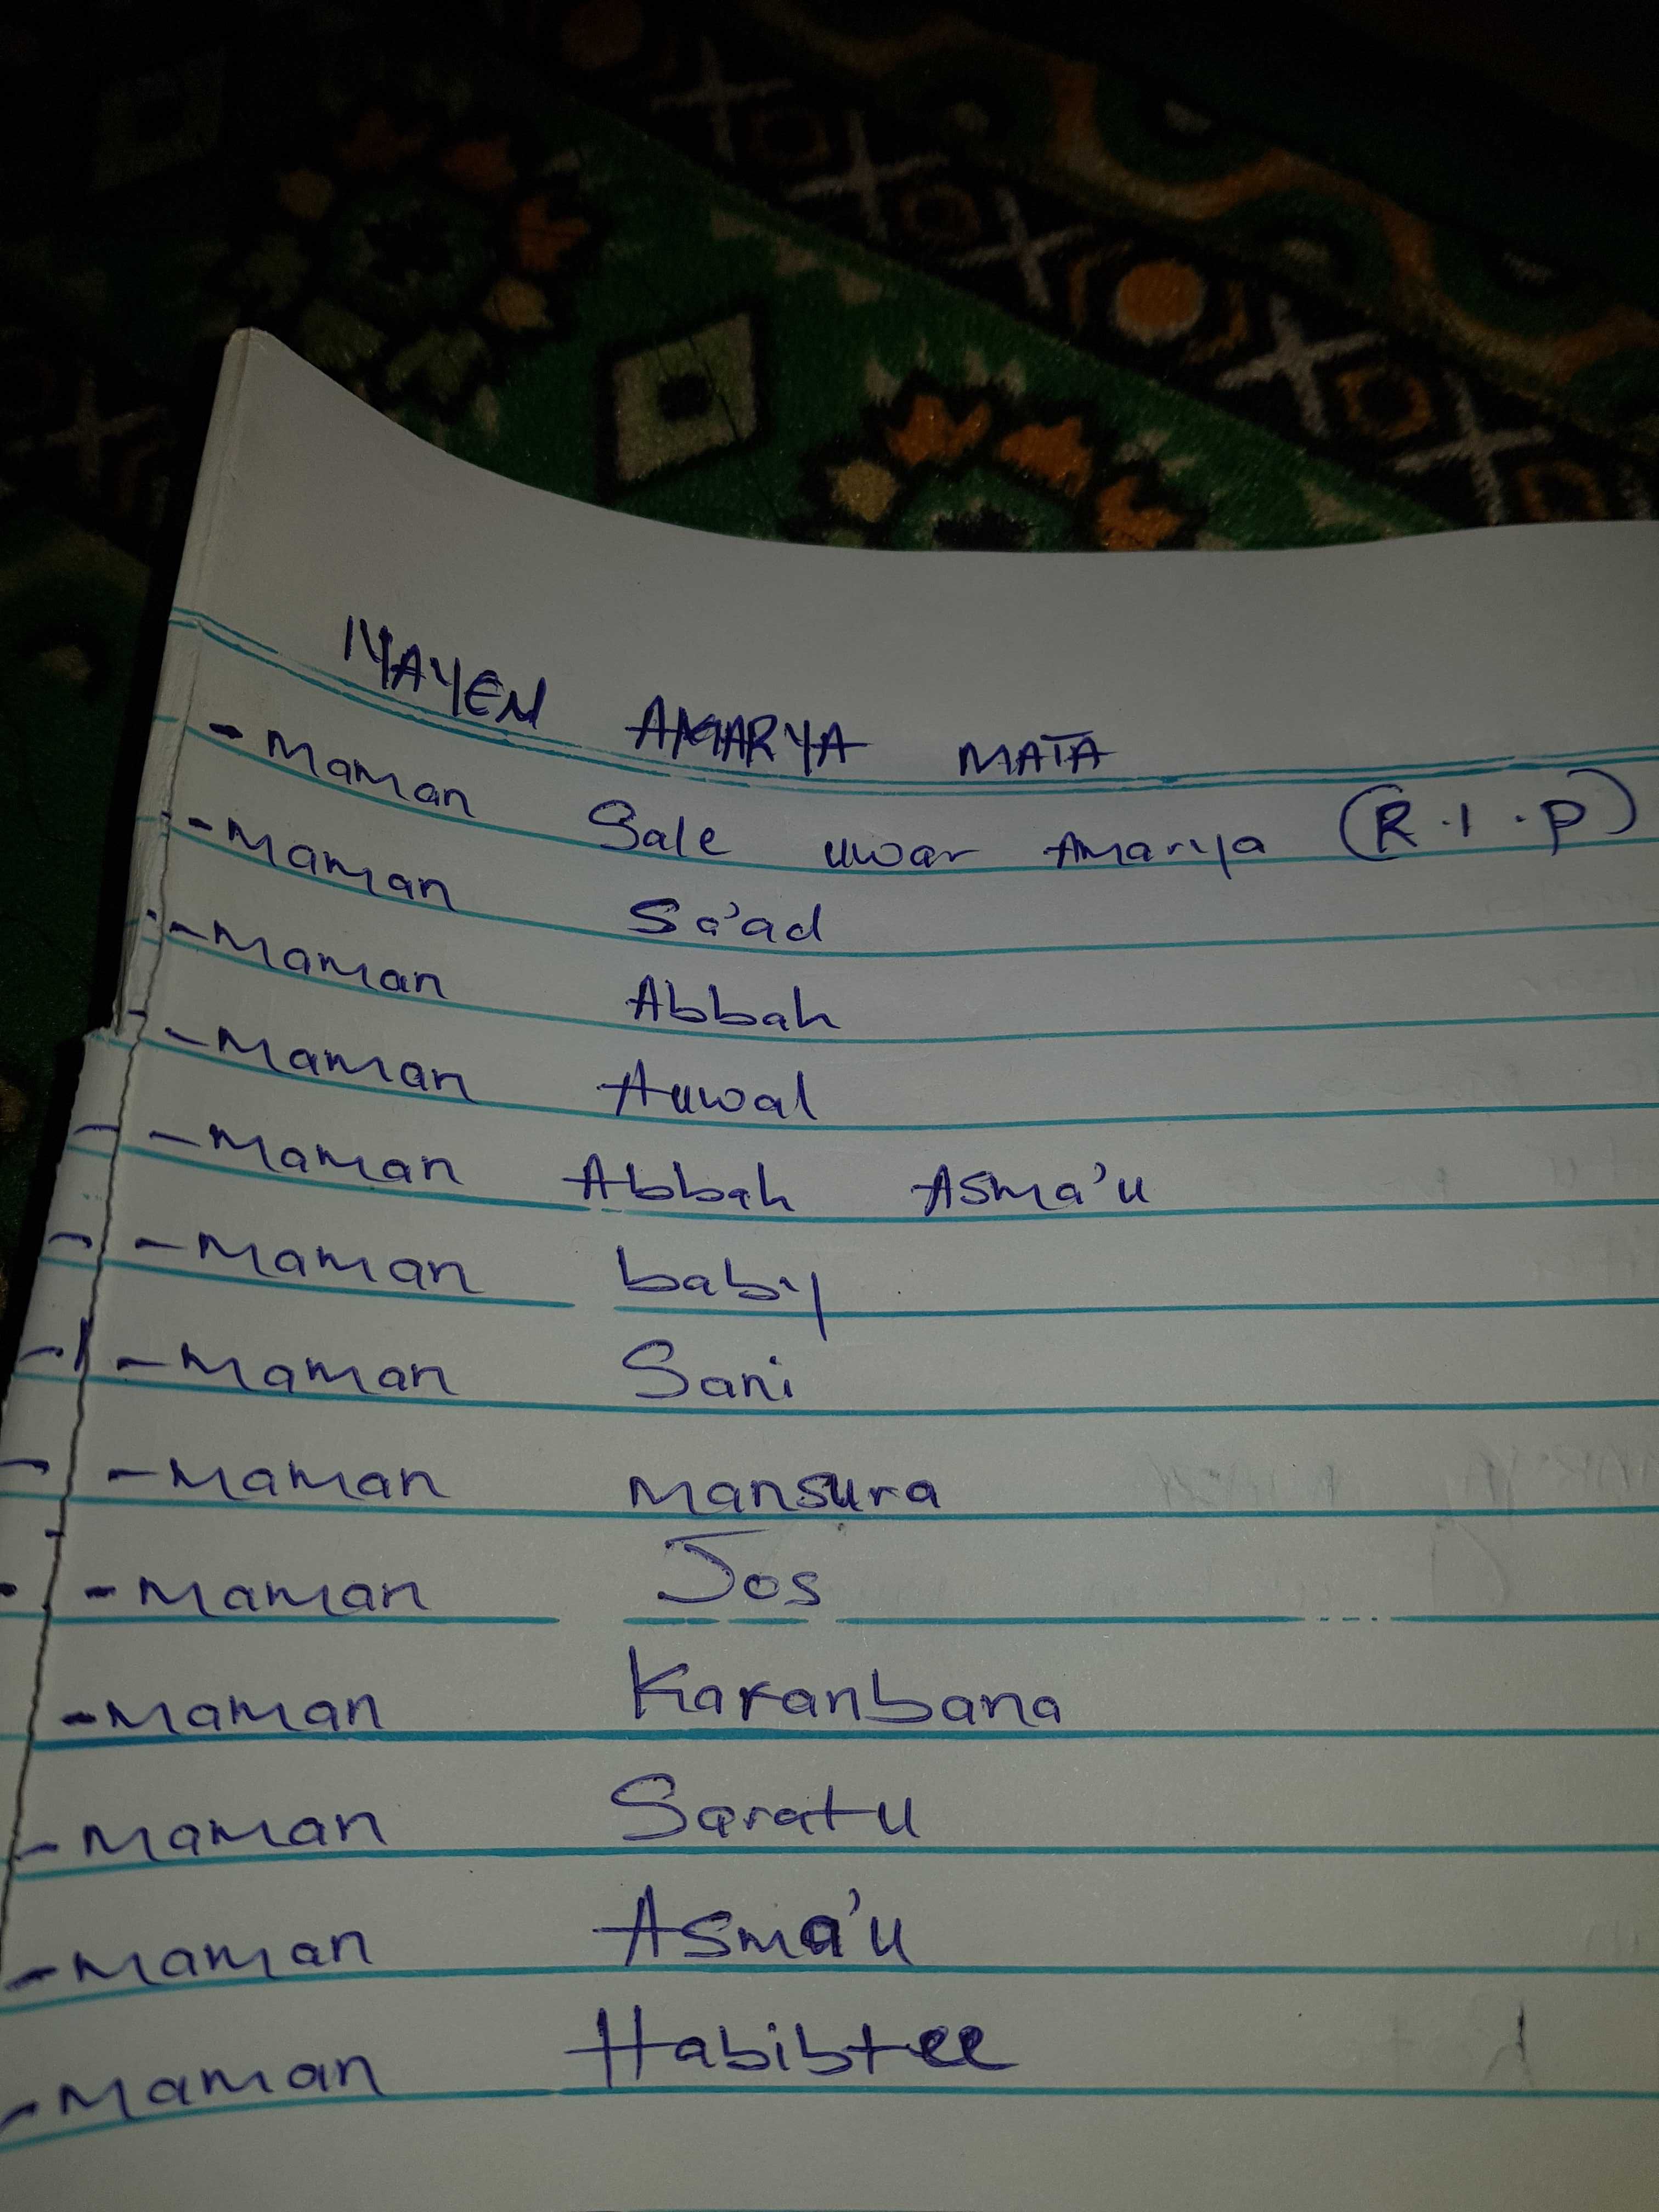 IYAYEN AMARYA MATA
- Maman Sale uwar Amarya (R.I.P)
- Maman Sa'ad
- Maman Abbah
- Maman Auwal
- Maman Abbah Asma'u
- Maman baby
- Maman Sani
- Maman Mansura
- Maman Jos
- Maman Karanbana
- Maman Saratu
- Maman Asma'u
- Maman Habibtee